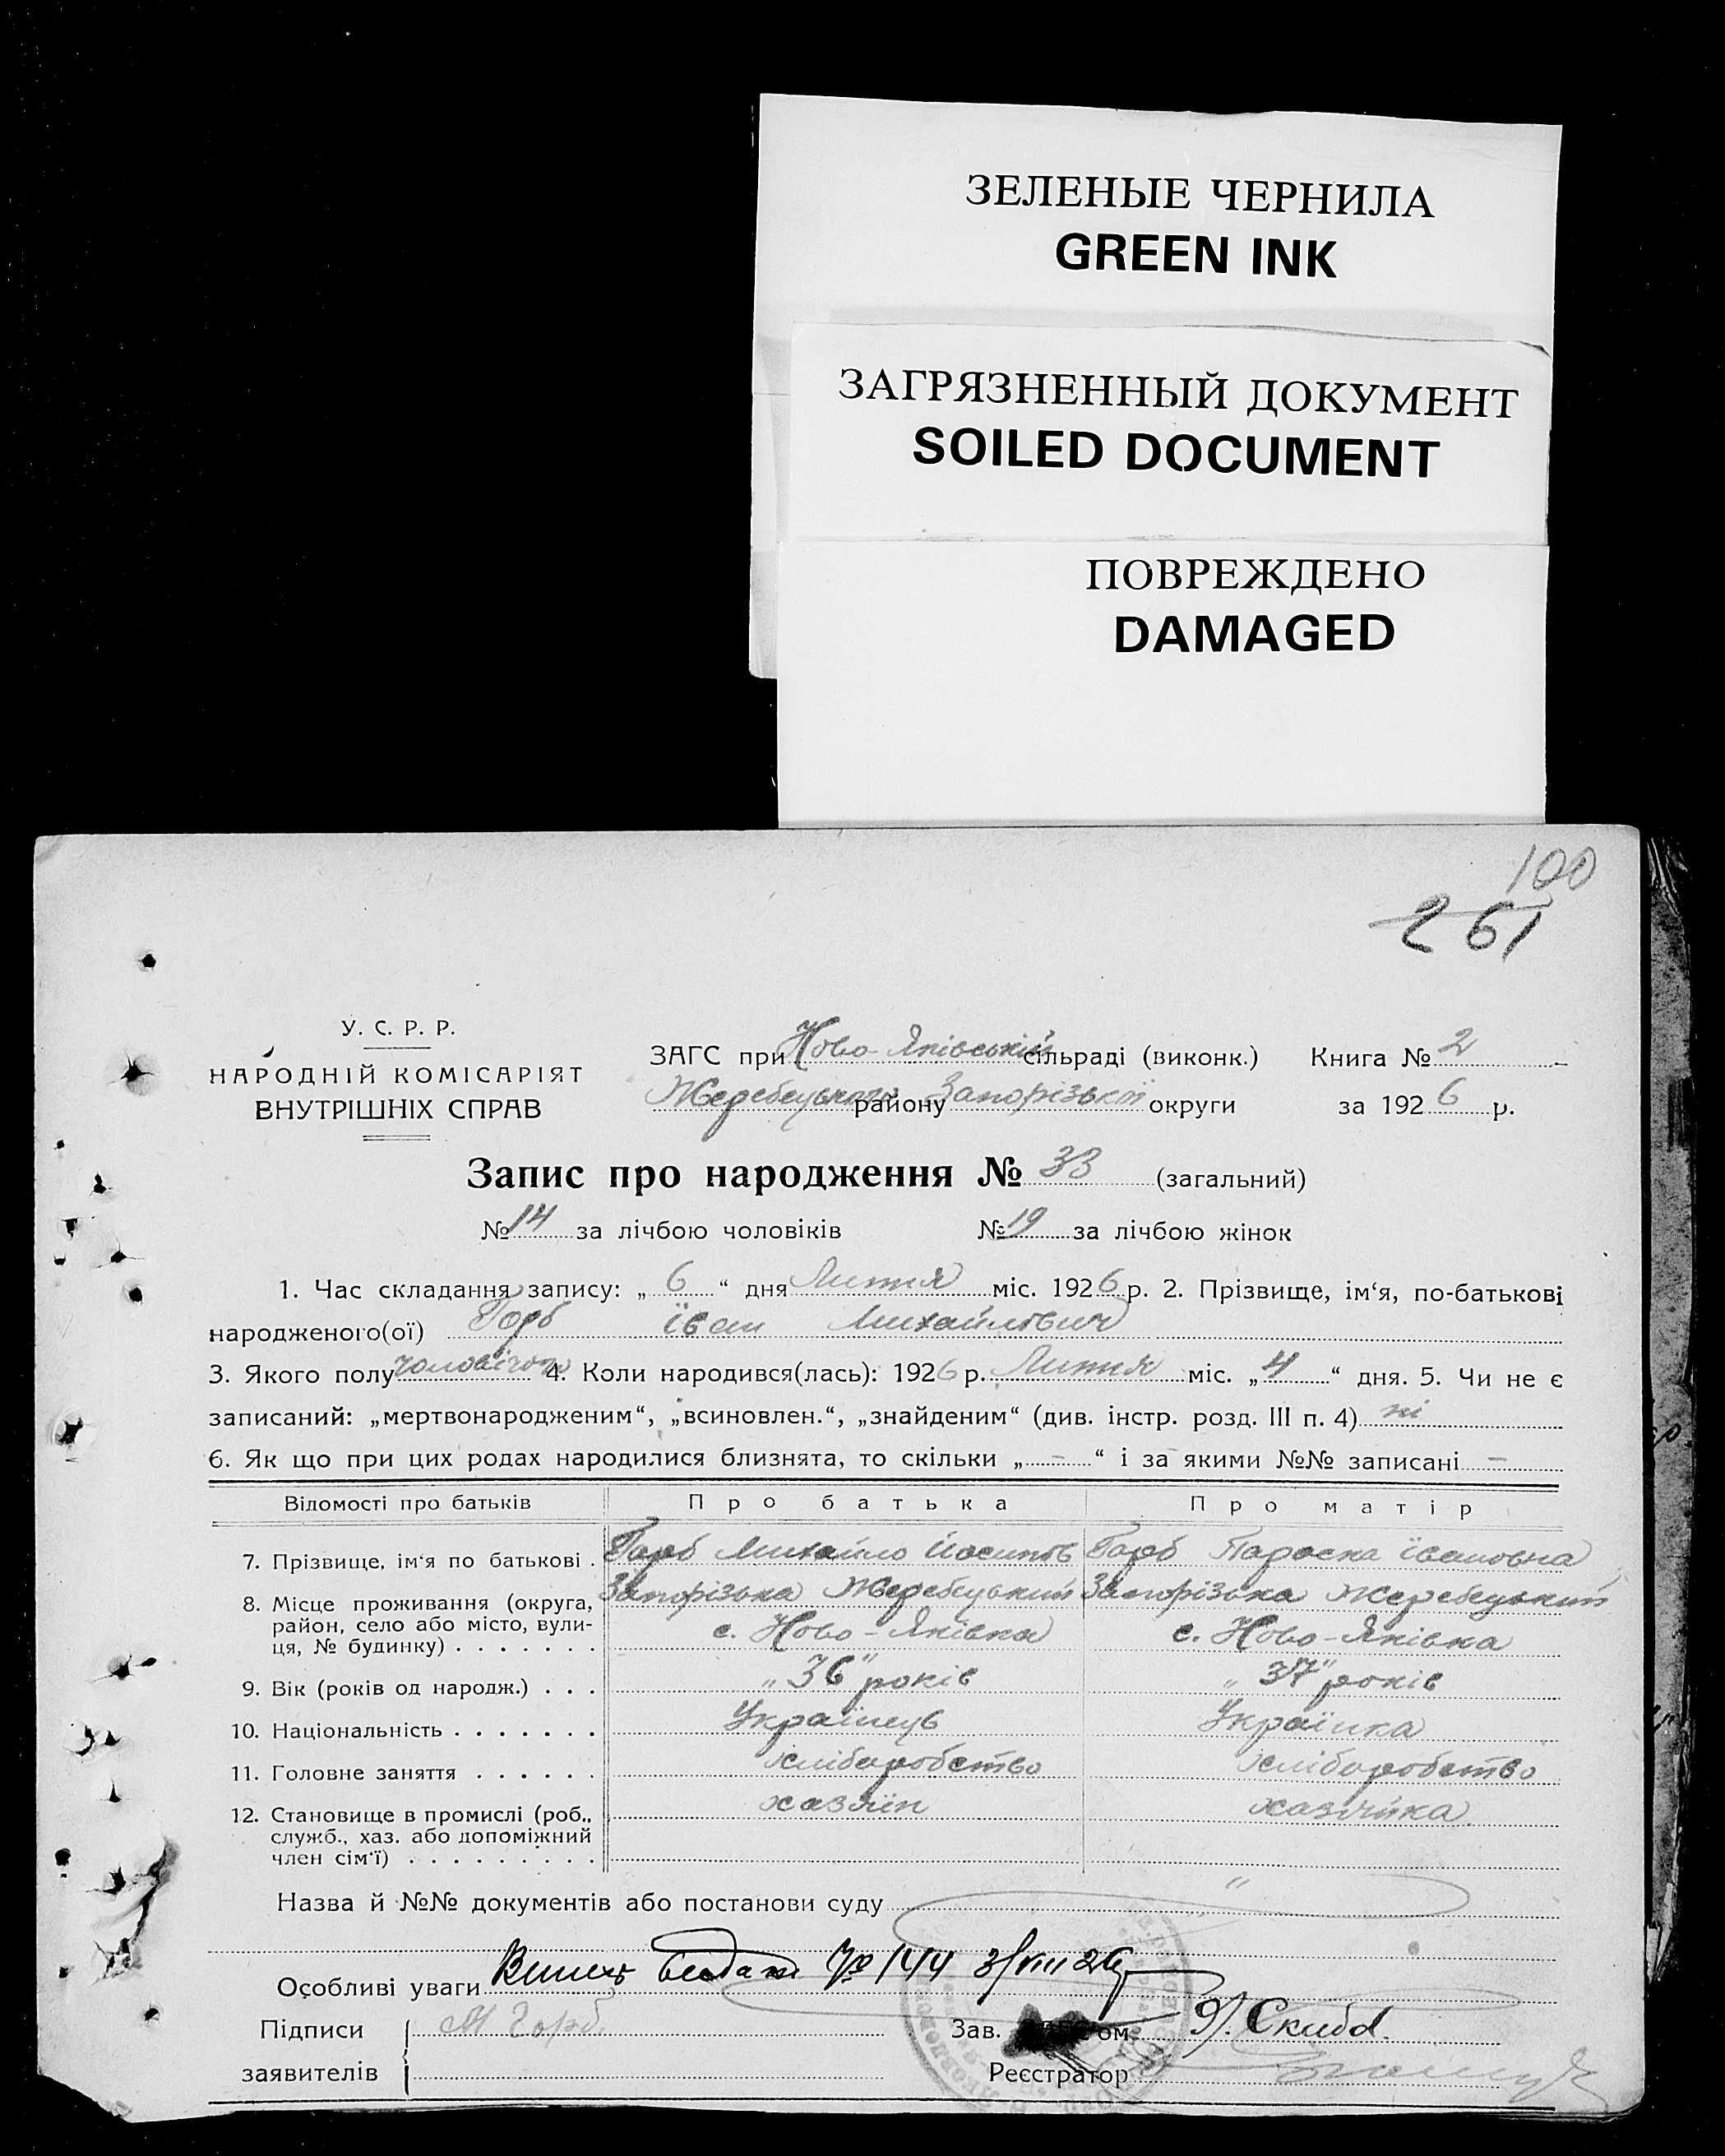 ЗЕЛЕНЫЕ ЧЕРНИЛА
GREEN INK
ЗАГРЯЗНЕННЫЙ ДОКУМЕНТ
SOILED DOCUMENT
ПОВРЕЖДЕНО
DAMAGED
100
261
У. С. Р. Р.
НАРОДНІЙ КОМІСАРІЯТ
ВНУТРІШНІХ СПРАВ
ЗАГС при Ново-Яківській сільраді (виконк.) Книга № 2
Жеребецького району Запорізької округи за 1926 р.
Запис про народження № 33 (загальний)
№ 14 за лічбою чоловіків № 19 за лічбою жінок
1. Час складання запису: „6“ дня Липня міс. 1926 р. 2. Прізвище, ім‘я, по-батькові
народженого(ої) Горб Іван Михайлович
3. Якого полу чоловічого 4. Коли народився(лась): 1926 р. Липня міс. „4“ дня. 5. Чи не є
записаний: „мертвонародженим“, „всиновлен.“, „знайденим“ (див. інстр. розд. III п. 4) ні
6. Як що при цих родах народилися близнята, то скільки „-“ і за якими №№ записані -
Відомості про батьків Про батька Про матір
7. Прізвище, ім‘я по батькові . Горб Михайло Йосипів Горб Параска Івановна
8. Місце проживання (округа, Запорізька Жеребецький Запорізька Жеребецький
район, село або місто, вули-
ця, № будинку) . . . . . . . с. Ново-Яківка с. Ново-Яківка
9. Вік (років од народж.) . . . „36“ років „37“ років
10. Національність . . . . . . . Українець Українка
11. Головне заняття . . . . . . хліборобство хліборобство
12. Становище в промислі (роб., хазяїн хазяйка
служб., хаз. або допоміжний
член сім‘ї) . . . . . . . . .
Назва й №№ документів або постанови суду "
Особливі уваги № 144 3/VIII 26
Підписи М Горб. Зав. ом
заявителів Реєстратор